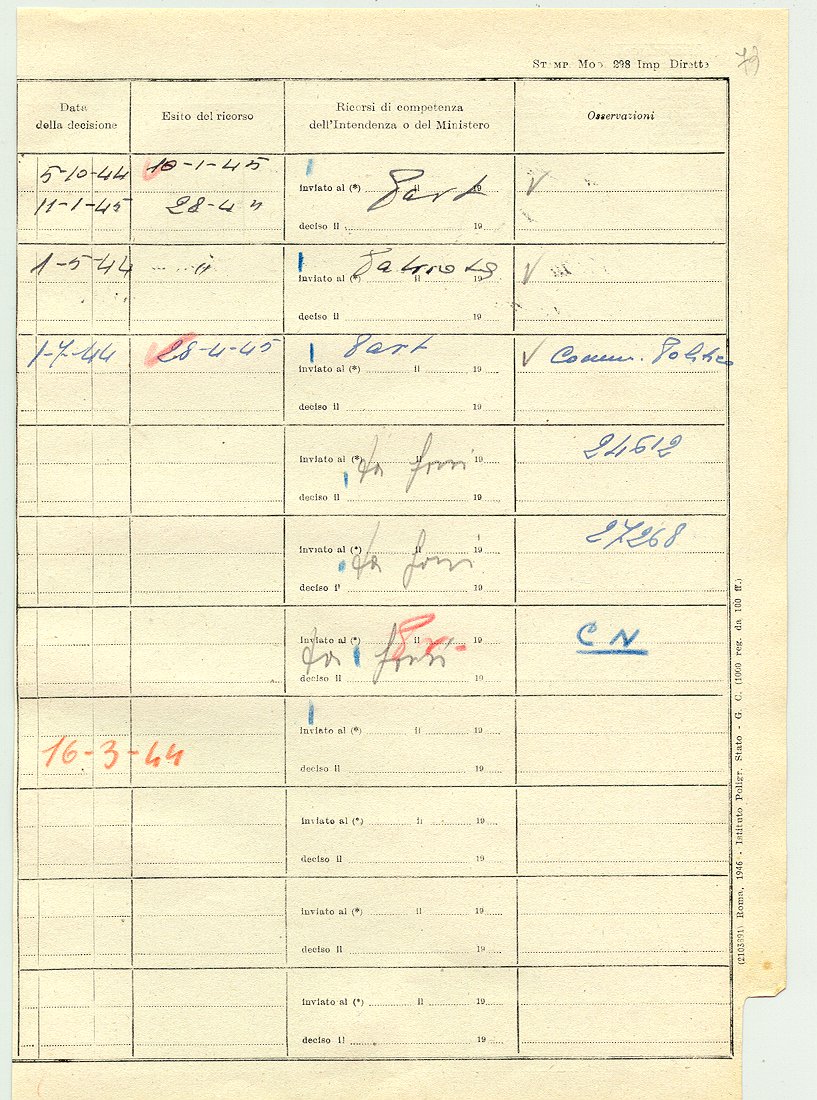 STAMP. MOD. 298 Imp Dirette
79
Data della decisione
Esito del ricorso
Ricorsi di competenza dell'Intendenza o del Ministero
Osservazioni
5-10-44 10-1-45
inviato al (*) Part il 19 V
11-1-45 28-4
deciso il 19
1-5-44
inviato al (*) il 19 V
deciso il 19
1-7-44 28-4-45 Part V Comm. Politico
inviato al (*) il 19
deciso il 19
24512
inviato al (*) il 19
deciso il 19
27268
inviato al (*) il 19
deciso il 19
inviato al (*) il 19 C N
deciso il 19
inviato al (*) il 19
16-3-44
deciso il 19
inviato al (*) il 19
deciso il 19
inviato al (*) il 19
deciso il 19
inviato al (*) il 19
deciso il 19
(2103891) Roma, 1946 - Istituto Poligr. Stato - G. C. (1000 reg. da 100 ff.)